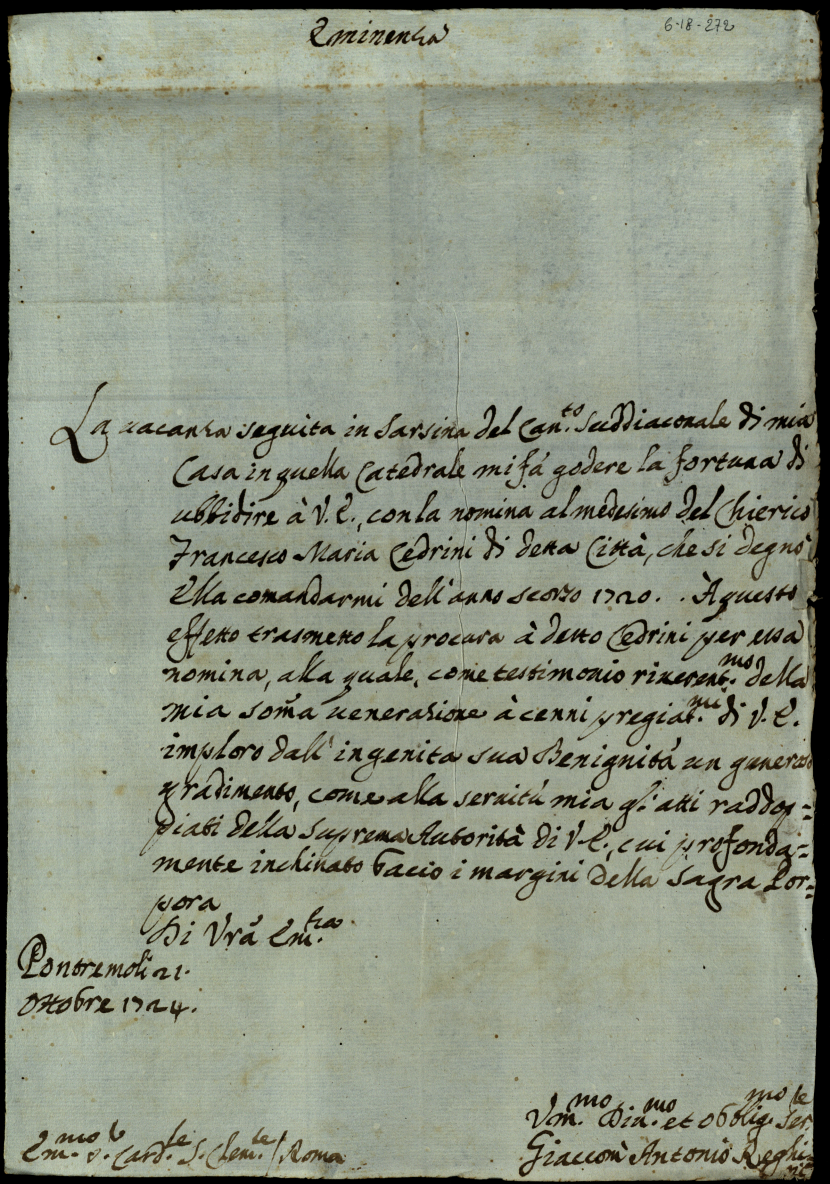 6-18-272
Eminenza
La vacanza seguita in Sarsina del Can.to Suddiaconale di mia
Casa in quella Catedrale mi fà godere la fortuna di
ubbidire à V. E., con la nomina al medesimo del Chierico
Francesco Maria Cedrini di detta Città, che si degnò
Ella comandarmi dell'anno scorso 1720. . À questo
effetto trasmetto la procura à detto Cedrini per essa
nomina, alla quale, come testimonio riverent.mo della
mia soma venerazione à cenni pregiat.mi di V. E.
imploro dall'ingenita sua Benignità un generoso
gradimento, come alla servitù mia gl'atti raddop=
piati della suprema Autorità di V. E., cui profonda=
mente inchinato bacio i margini della Sagra Por=
pora
Di Vrã Em.za
Pontremoli 21.
Ottobre 1724.
Vm.mo Div.mo et Obblig.mo Ser.le
Giaccom Antonio Reghini
Em.mo S. Card.le S. Clem.te / Roma